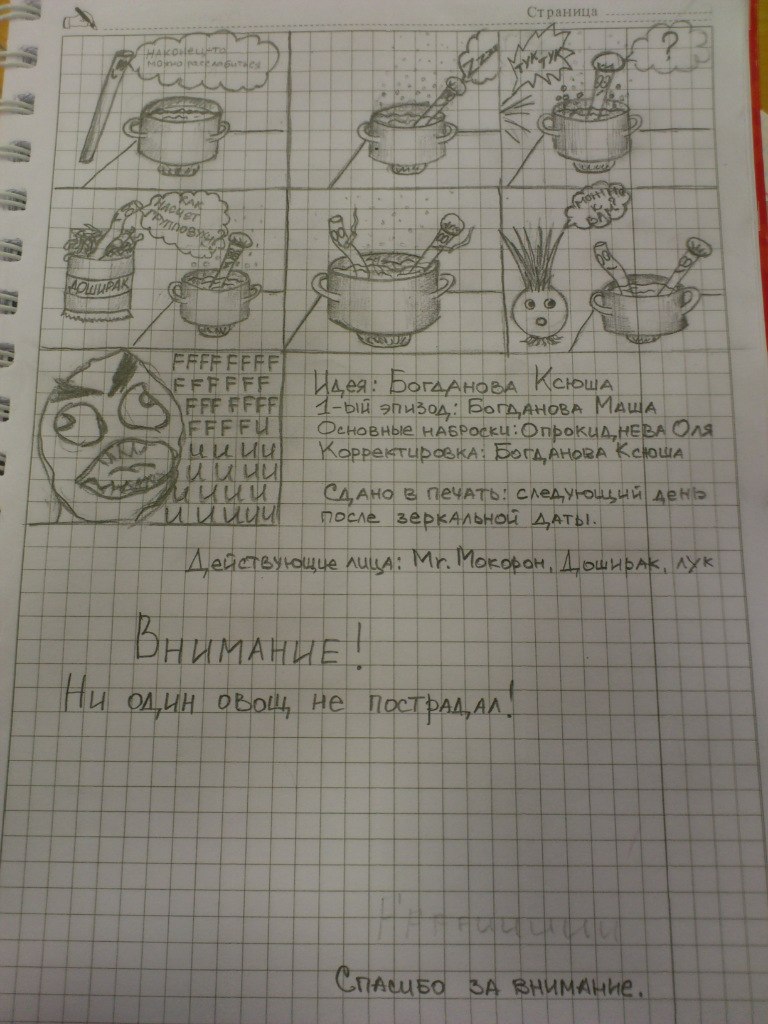 Страница
НАКОНЕЦ-ТО
МОЖНО РАССЛАБИТЬСЯ
Zzzz
ТУК
ТУК
?
КАК
НАСЧЕТ
ДОШИРАК
МОЖНО
К
ВАМ?
FFFF FFFF
FFFFFF
FFF FFFF
FFFFU
UUUU
UUUU
UUUU
UUUUU
Идея: Богданова Ксюша
1-ый эпизод: Богданова Маша
Основные наброски: Опрокиднева Оля
Корректировка: Богданова Ксюша
Сдано в печать: следующий день
после зеркальной даты.
Действующие лица: Mr. Мокорон, Доширак, лук
Внимание!
Ни один овощ не пострадал!
Спасибо за внимание.